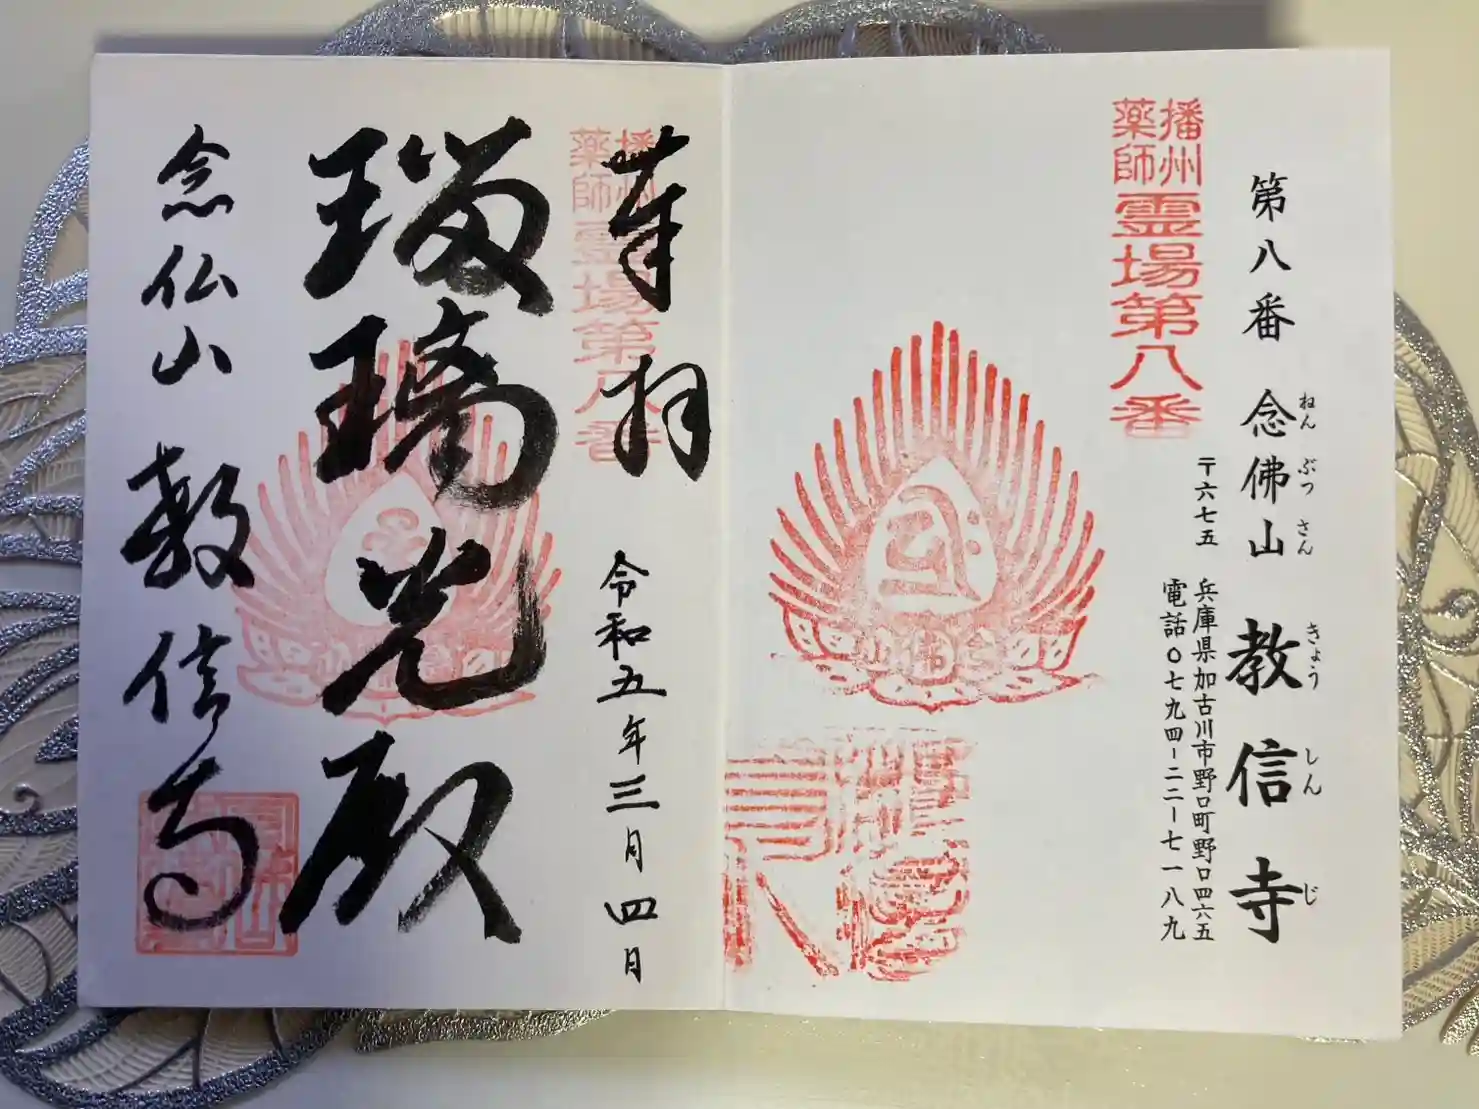 第八番 念佛山 教信寺
ねんぶつさん きょうしんじ
〒六七五 兵庫県加古川市野口町野口四六五
電話〇七九四-二二-七一八九
播州
薬師
霊場第八番
奉拝 令和五年三月四日
播州
薬師
霊場第八番
瑠璃光殿
念仏山 教信寺